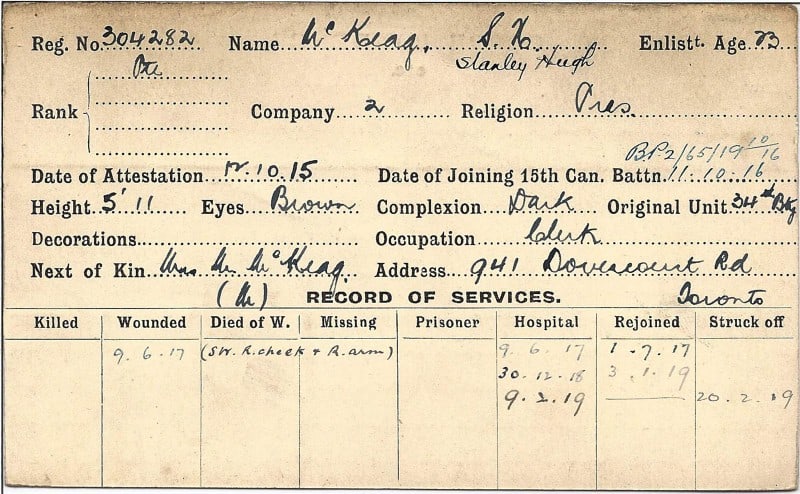 Reg. No. 304282 Name McKeag, S. H. Enlistt. Age 23
Stanley Hugh
Pte
Rank Company 2 Religion Pres.
B.P.2/65/19 10/16
Date of Attestation 12.10.15 Date of Joining 15th Can. Battn. 11.10.16
Height 5' 11 Eyes Brown Complexion Dark Original Unit 34th Bty
Decorations Occupation Clerk
Next of Kin Mrs M McKeag. Address 941 Dovercourt Rd
(M) RECORD OF SERVICES. Toronto
Killed Wounded Died of W. Missing Prisoner Hospital Rejoined Struck off
9.6.17 (SW. R. cheek + R. arm) 9.6.17 1.7.17
30.12.18 3.1.19
9.2.19 20.2.19